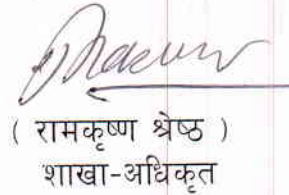 ( रामकृष्ण श्रेष्ठ )
शाखा-अधिकृत